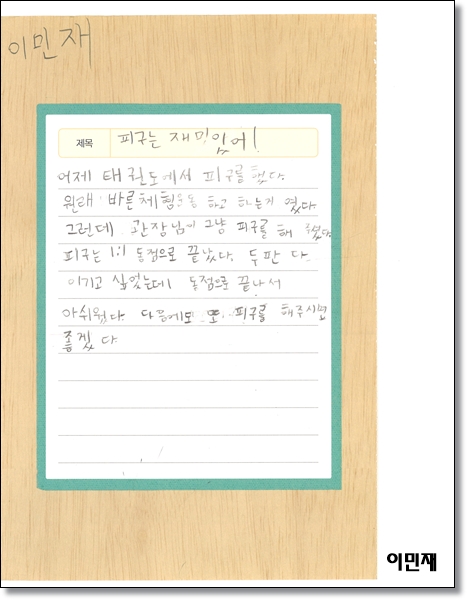 이민재
제목 피구는 재미있어!
어제 태권도에서 피구를 했다.
원래 바른체험운동 하고 하는거 였다
그런데 관장님이 그냥 피구를 해 주셨다.
피구는 1:1 동점으로 끝났다. 두판 다
이기고 싶었는데 동점으로 끝나서
아쉬웠다 다음에도 또 피구를 해주시면
좋겠다
이민재